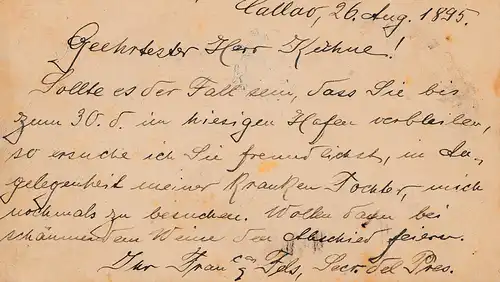 Callao, 26. Aug. 1895.
Geehrtester Herr Kühne!
Sollte es der Fall sein, dass Sie bis
zum 30. d. im hiesigen Hafen verbleiben,
so ersuche ich Sie freundlichst, in An-
gelegenheit meiner kranken Tochter, mich
nochmals zu besuchen. Wollen dann bei
schäumendem Weine den Abschied feiern.
Ihr Fran cos Fels, Secr. del Pres.